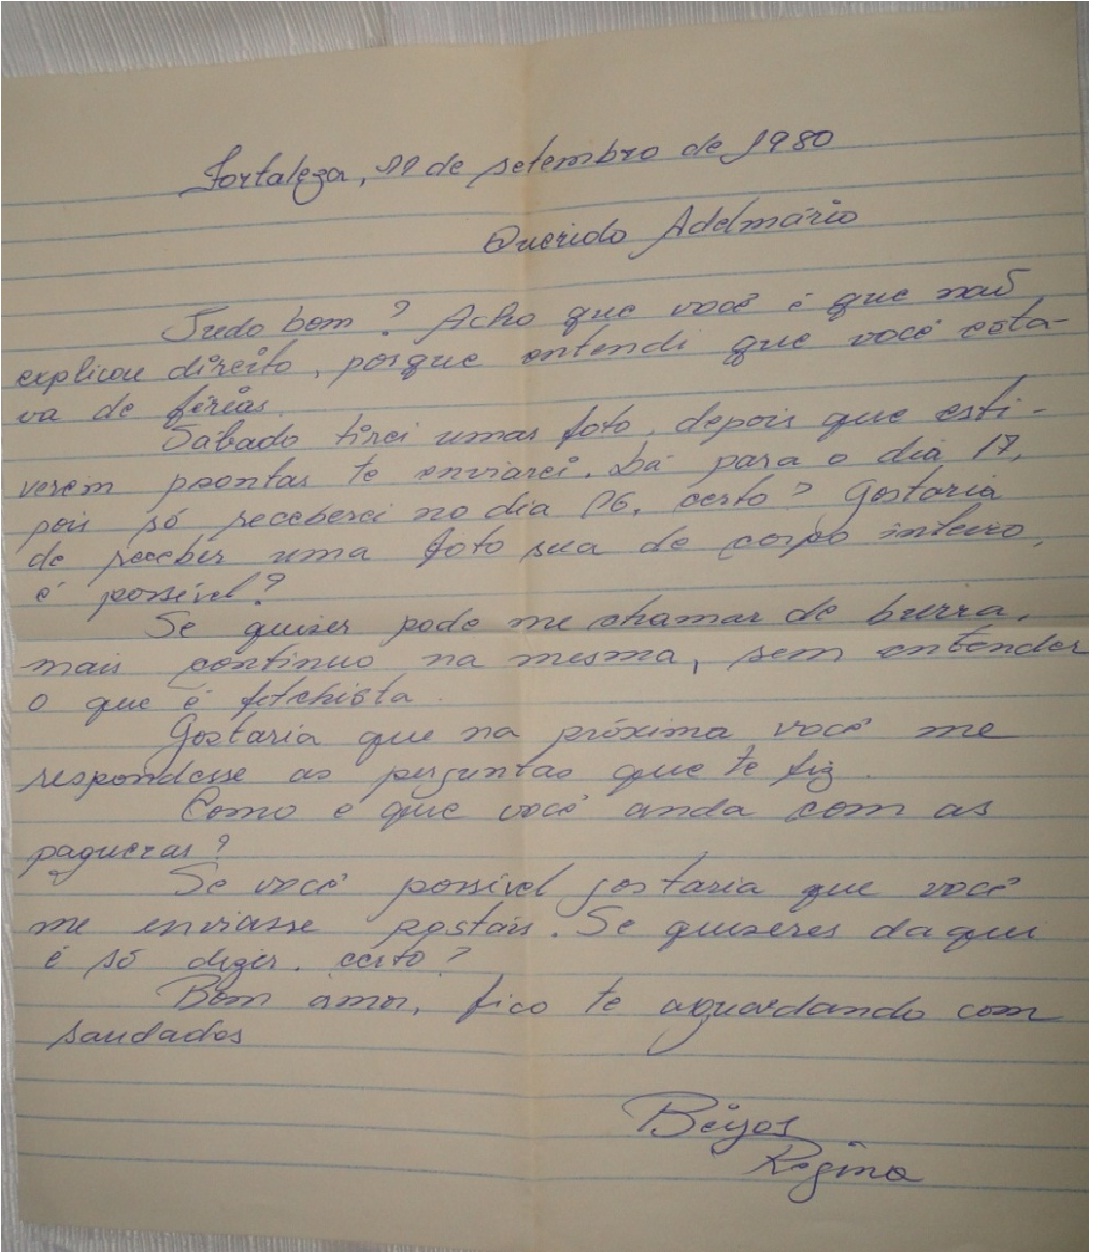 Fortaleza, 11 de setembro de 1980
Querido Adelmário
Tudo bom? Acho que você é que não
explicou direito, porque entendi que você esta-
va de férias.
Sábado tirei umas foto, depois que esti-
verem prontas te enviarei. Lá para o dia 17,
pois só receberei no dia 16, certo? Gostaria
de receber uma foto sua de corpo inteiro,
é possível?
Se quiser pode me chamar de burra,
mais continuo na mesma, sem entender
o que é fetchista.
Gostaria que na próxima você me
respondesse as perguntas que te fiz.
Como é que você anda com as
paqueras?
Se você possível gostaria que você
me enviasse postais. Se quiseres daqui
é só dizer, certo?
Bom amor, fico te aguardando com
saudades
Beijos
Regina